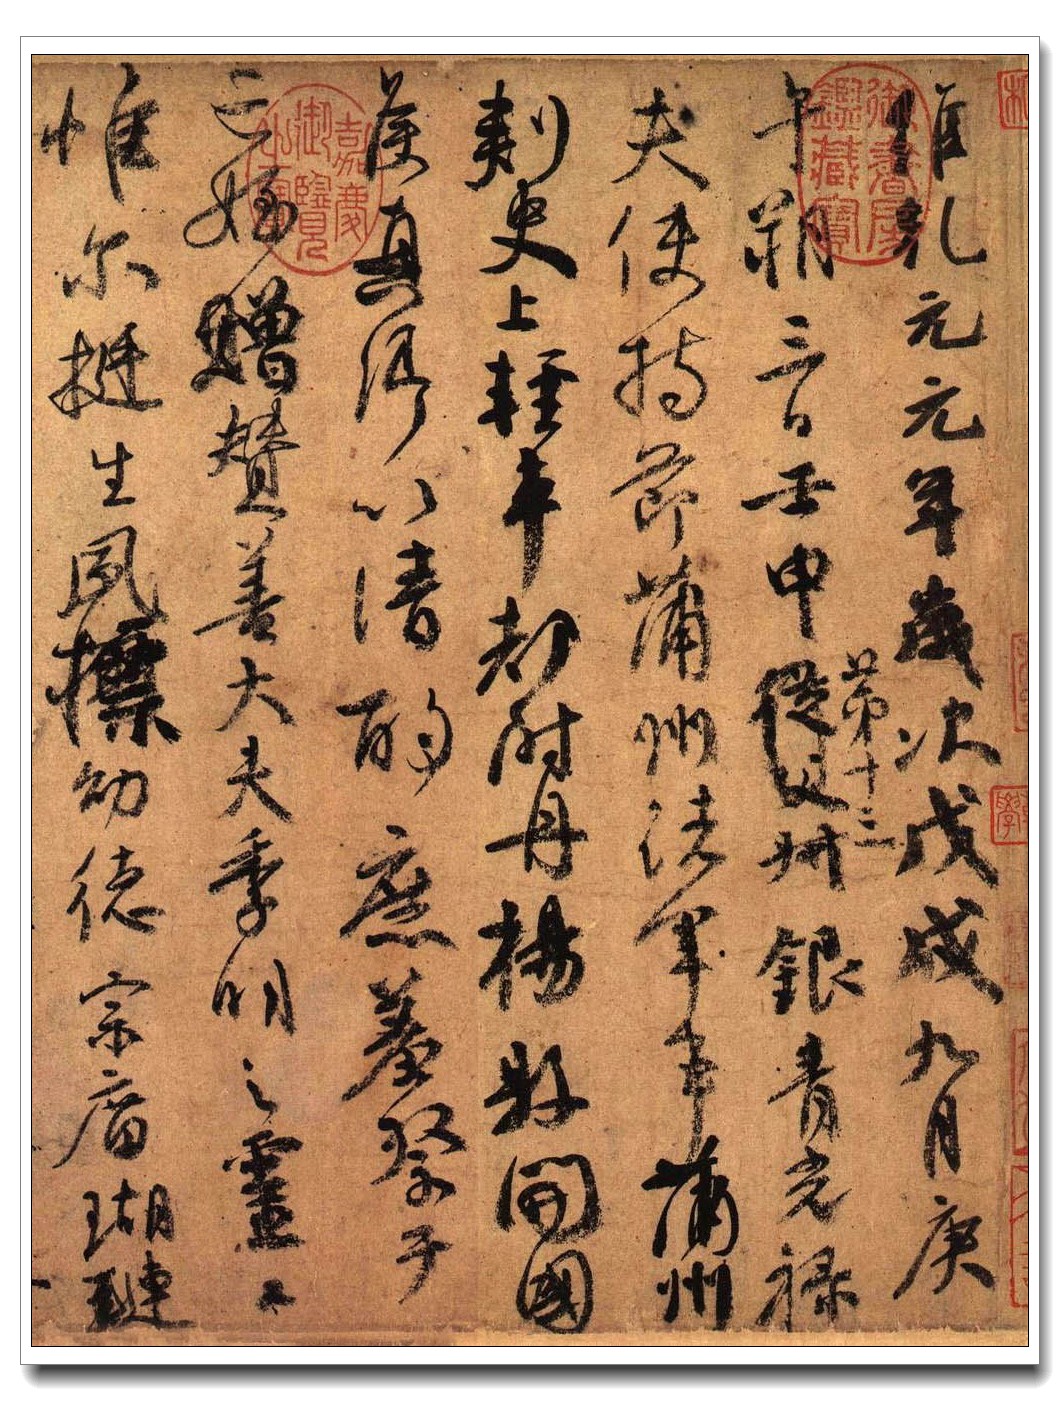 維乾元元年歲次戊戌九月庚
午朔三日壬申從父叔銀青光祿
第十三
夫使持節蒲州諸軍事蒲州
刺史上輕車都尉丹楊縣開國
侯真卿以清酌庶羞祭于
亡姪贈贊善大夫季明之靈曰
惟尔挺生夙標幼德宗廟瑚璉
御書房鑑藏寶
嘉慶御覽之寶